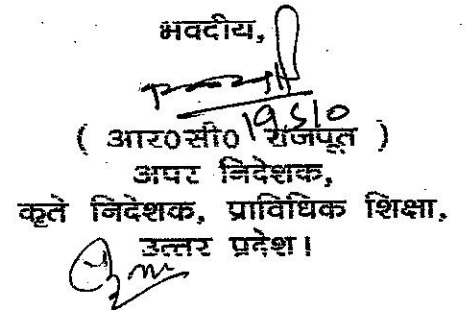 भवदीय,
( आर०सी० राजपूत )
अपर निदेशक,
कृते निदेशक, प्राविधिक शिक्षा,
उत्तर प्रदेश।